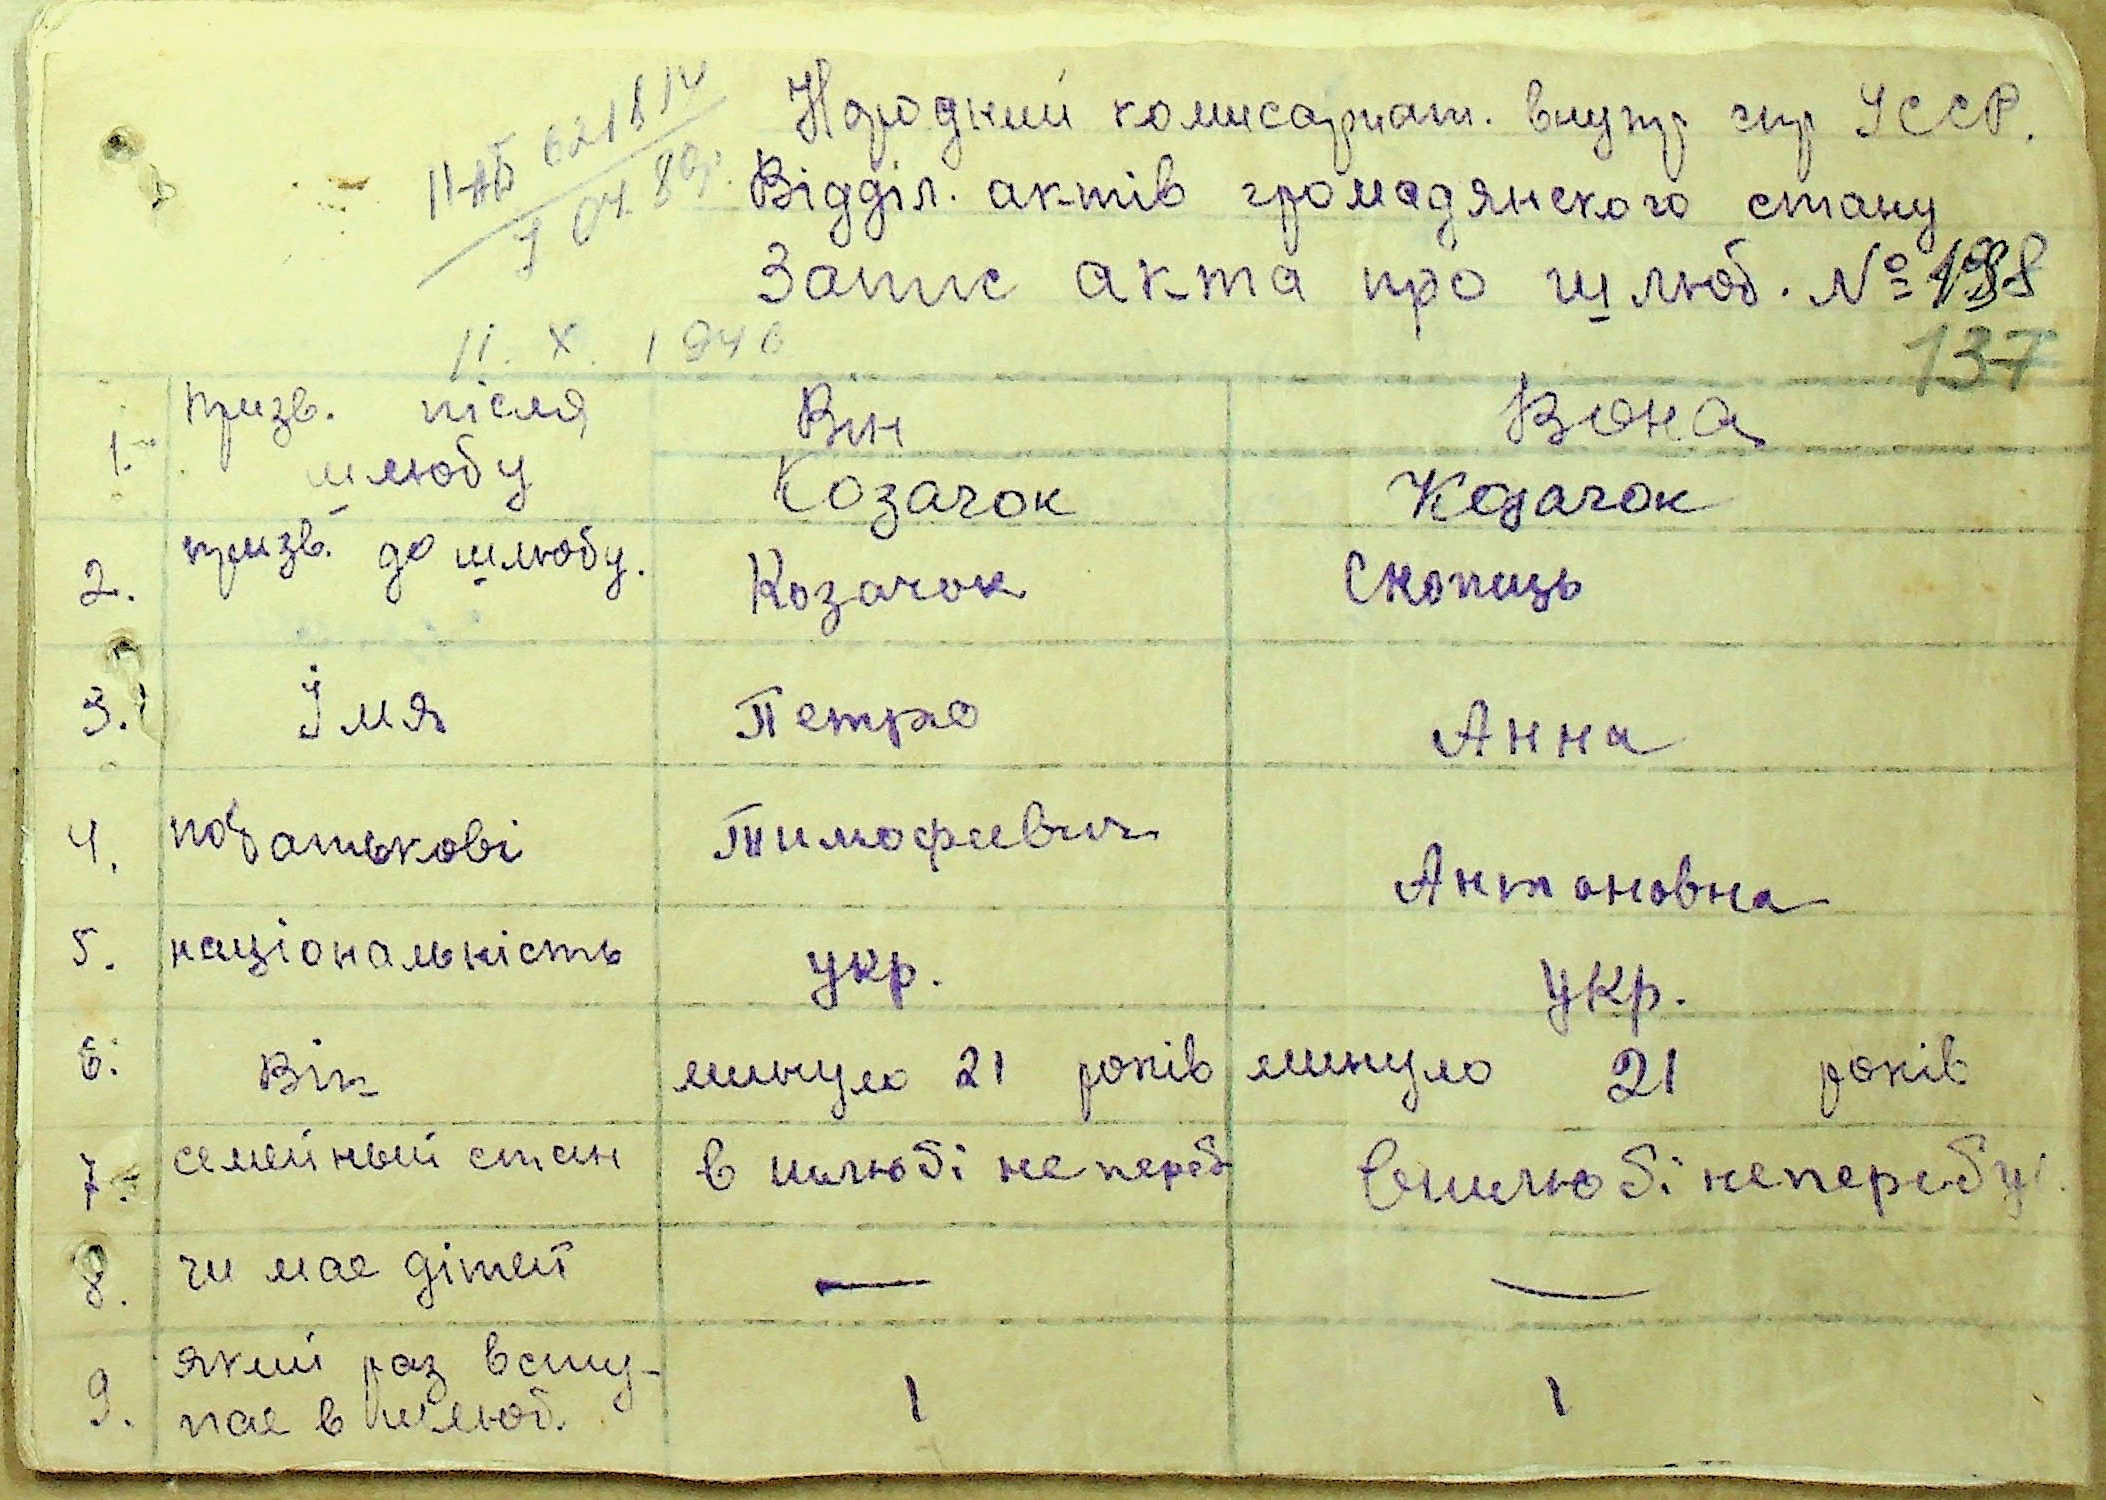 II-АБ 621814
04. 80р.
Народний комисариат. внутр спр УССР.
Відділ. актів громадянского стану
Запис акта про шлюб. №
137
11. X. 1946
призв. після Він Вона
1. шлюбу Козачок Козачок
2. призв. до шлюбу. Козачок Скопець
3. Імя Петро Анна
4. побатькові Тимофеевич Антоновна
5. національність укр. укр.
6. Вік минуло 21 років минуло 21 років
7. семейный стан в шлюбі не переб в шлюбі не перебу.
8. чи мае дітей — —
9. який раз всту-
пае в шлюб. 1 1